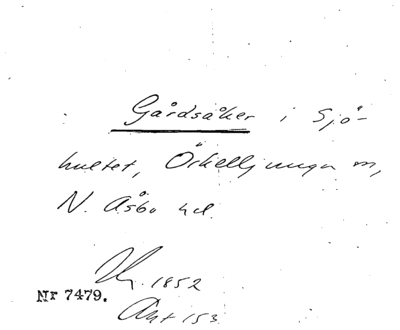 Gårdsåker i Sjö-
hultet, Örkelljunga sn,
N. Åsbo hd.
1852
Nr 7479.
Akt 153